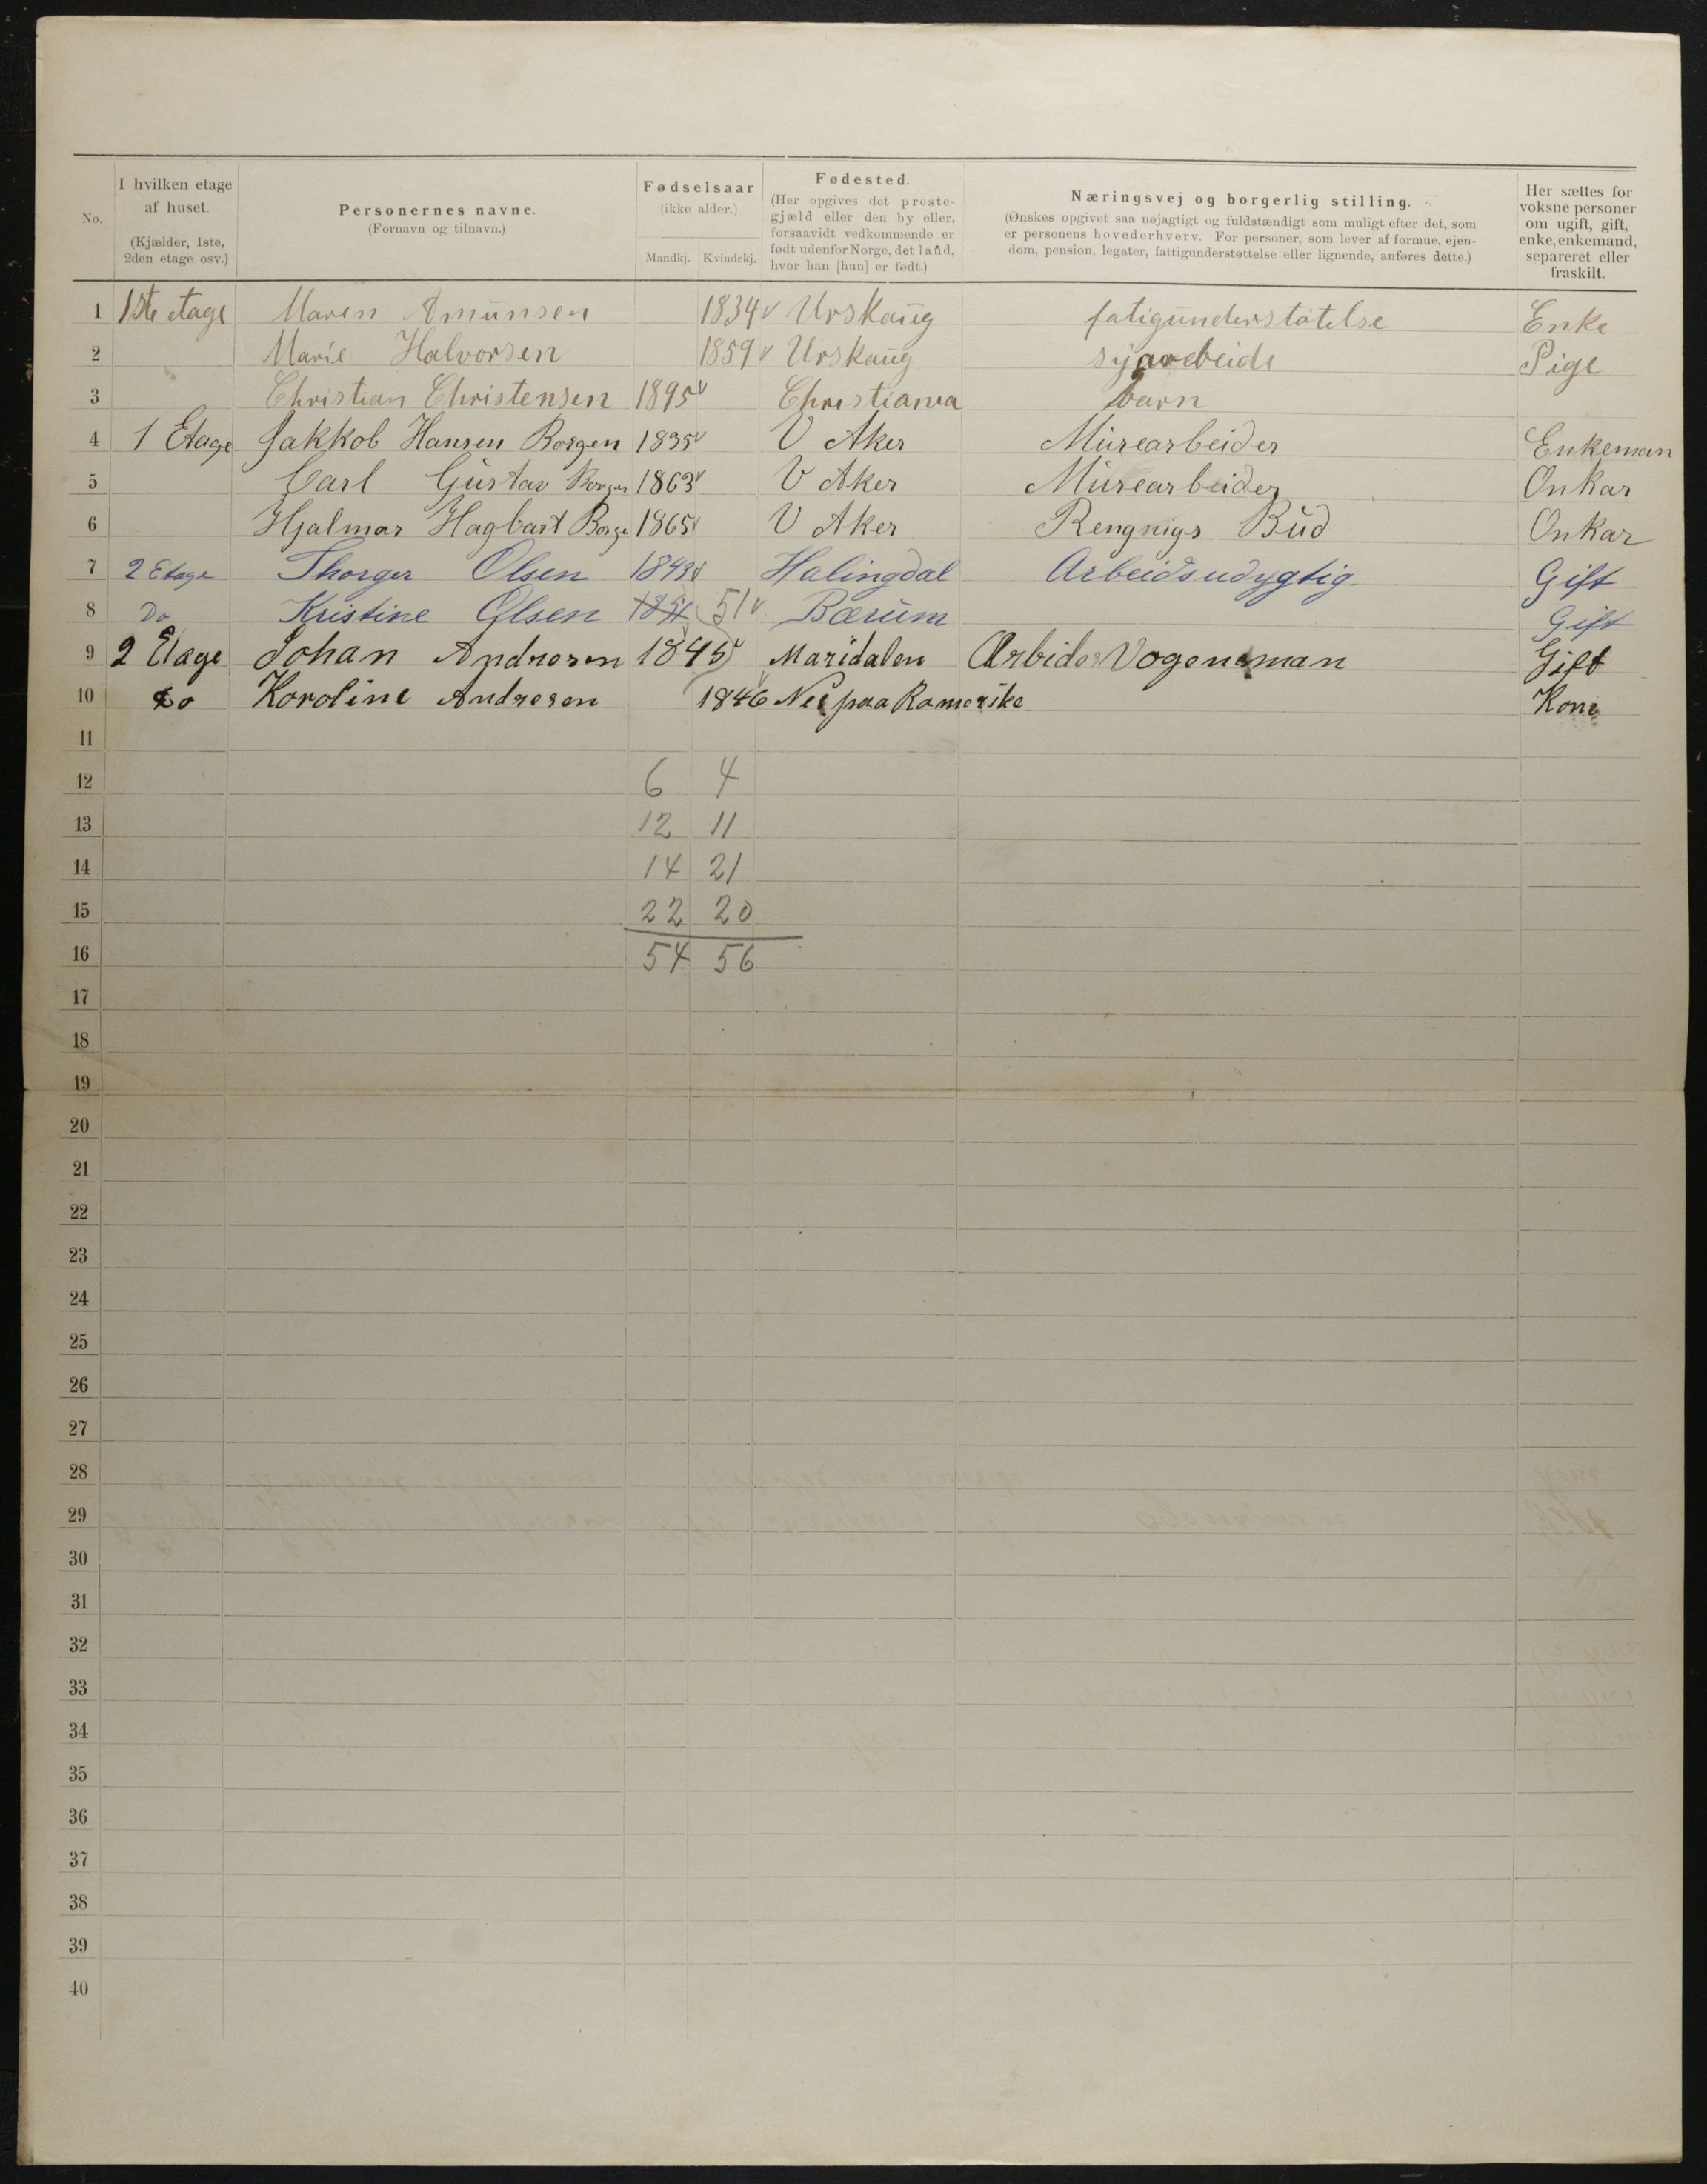 No.
I hvilken etage af huset. (Kjælder, 1ste, 2den etage osv.)
Personernes navne. (Fornavn og tilnavn.)
Fødselsaar (ikke alder.) Mandkj. Kvindekj.
Fødested. (Her opgives det prestegjæld eller den by eller, forsaavidt vedkommende er født udenfor Norge, det land, hvor han [hun] er født.)
Næringsvej og borgerlig stilling. (Ønskes opgivet saa nøjagtigt og fuldstændigt som muligt efter det, som er personens hovederhverv. For personer, som lever af formue, ejendom, pension, legater, fattigunderstøttelse eller lignende, anføres dette.)
Her sættes for voksne personer om ugift, gift, enke, enkemand, separeret eller fraskilt.
1 1ste etage Maren Amunsen 1834 v Urskaug fatigunderstøtelse Enke
2 Marie Halvorsen 1859 v Urskaug syarebeide Pige
3 Christian Christensen 1895 v Christiania barn
4 1 Etage Jakkob Hansen Borgen 1835 v V Aker Murearbeider Enkeman
5 Carl Gustav Borgen 1863 v V Aker Murearbeider Onkar
6 Hjalmar Hagbart Borge 1865 v V Aker Rengnigs Bud Onkar
7 2 Etage Thorger Olsen 1843 v Halingdal Arbeidsudygtig Gift
8 Do Kristine Olsen 1851 51 v Bærum Gift
9 2 Etage Johan Andresen 1845 v Maridalen Arbider Vogensman Gift
10 do Karoline Andresen 1846 Nes paa Romerike Kone
11
12 6 4
13 12 11
14 14 21
15 22 20
16 54 56
17
18
19
20
21
22
23
24
25
26
27
28
29
30
31
32
33
34
35
36
37
38
39
40